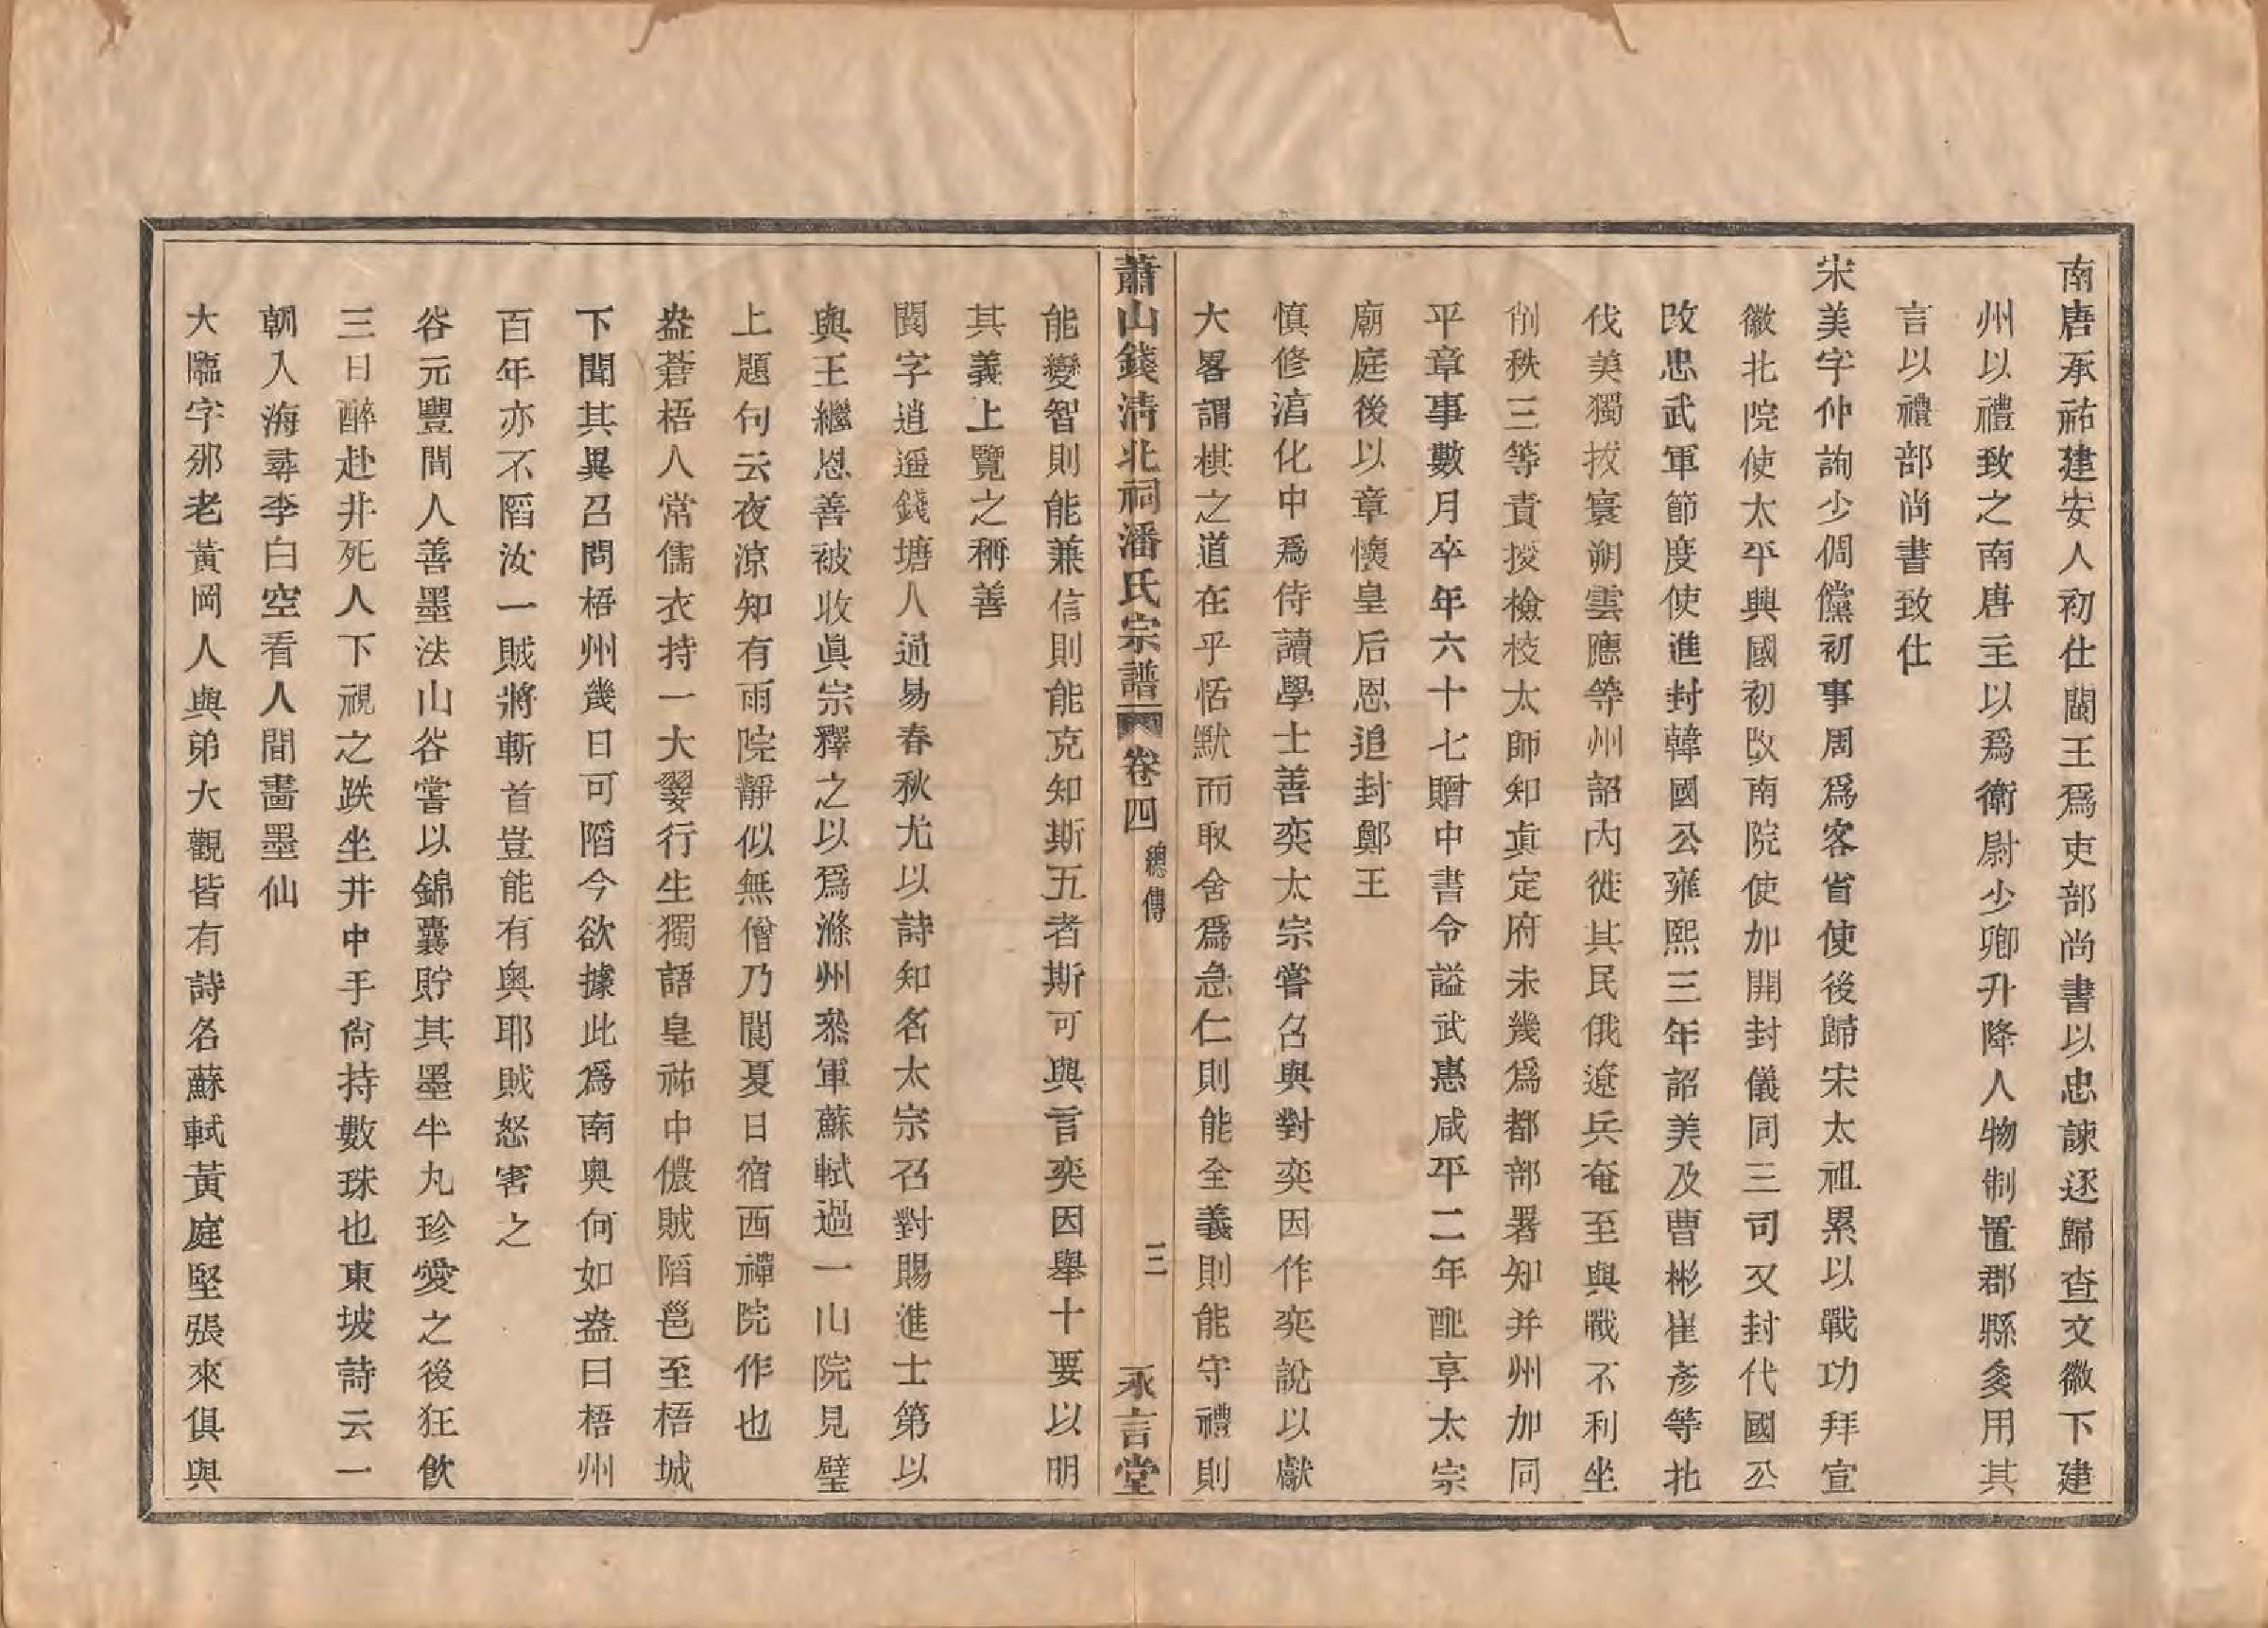 南唐承祐建安人初仕閩王爲吏部尚書以忠諫逐歸查文徽下建
州以禮致之南唐主以爲衛尉少卿升降人物制置郡縣叅用其
言以禮部尚書致仕
宋美字仲詢少倜儻初事周爲客省使後歸宋太祖累以戰功拜宣
徽北院使太平興國初改南院使加開封儀同三司又封代國公
改忠武軍節度使進封韓國公雍熙三年詔美及曹彬崔彥等北
伐美獨拔寰朔雲應等州詔內徙其民俄遼兵奄至與戰不利坐
削秩三等責授檢校太師知眞定府未幾爲都部署知并州加同
平章事數月卒年六十七贈中書令謚武惠咸平二年配享太宗
廟庭後以章懷皇后恩追封鄭王
慎修淯化中爲侍讀學士善奕太宗嘗召與對奕因作奕說以獻
大畧謂棋之道在乎恬默而取舍爲急仁則能全義則能守禮則
蕭山錢淸北祠潘氏宗譜 卷四 總傳 三 承言堂
能變智則能兼信則能克知斯五者斯可與言奕因舉十要以明
其義上覽之稱善
閬字逍遥錢塘人通易春秋尤以詩知名太宗召對賜進士第以
與王繼恩善被收眞宗釋之以爲滁州叅軍蘇軾過一山院見壁
上題句云夜涼知有雨院靜似無僧乃閬夏日宿西禪院作也
盎蒼梧人常儒衣持一大翣行生獨語皇祐中儂賊陷邕至梧城
下聞其異召問梧州幾日可陷今欲據此爲南奥何如盎曰梧州
百年亦不陷汝一賊將斬首豈能有奥耶賊怒害之
谷元豐間人善墨法山谷嘗以錦囊貯其墨半丸珍愛之後狂飲
三日醉赴井死人下視之趺坐井中手尙持數珠也東坡詩云一
朝入海尋李白空看人間畫墨仙
大臨字邠老黃岡人與弟大觀皆有詩名蘇軾黃庭堅張來俱與